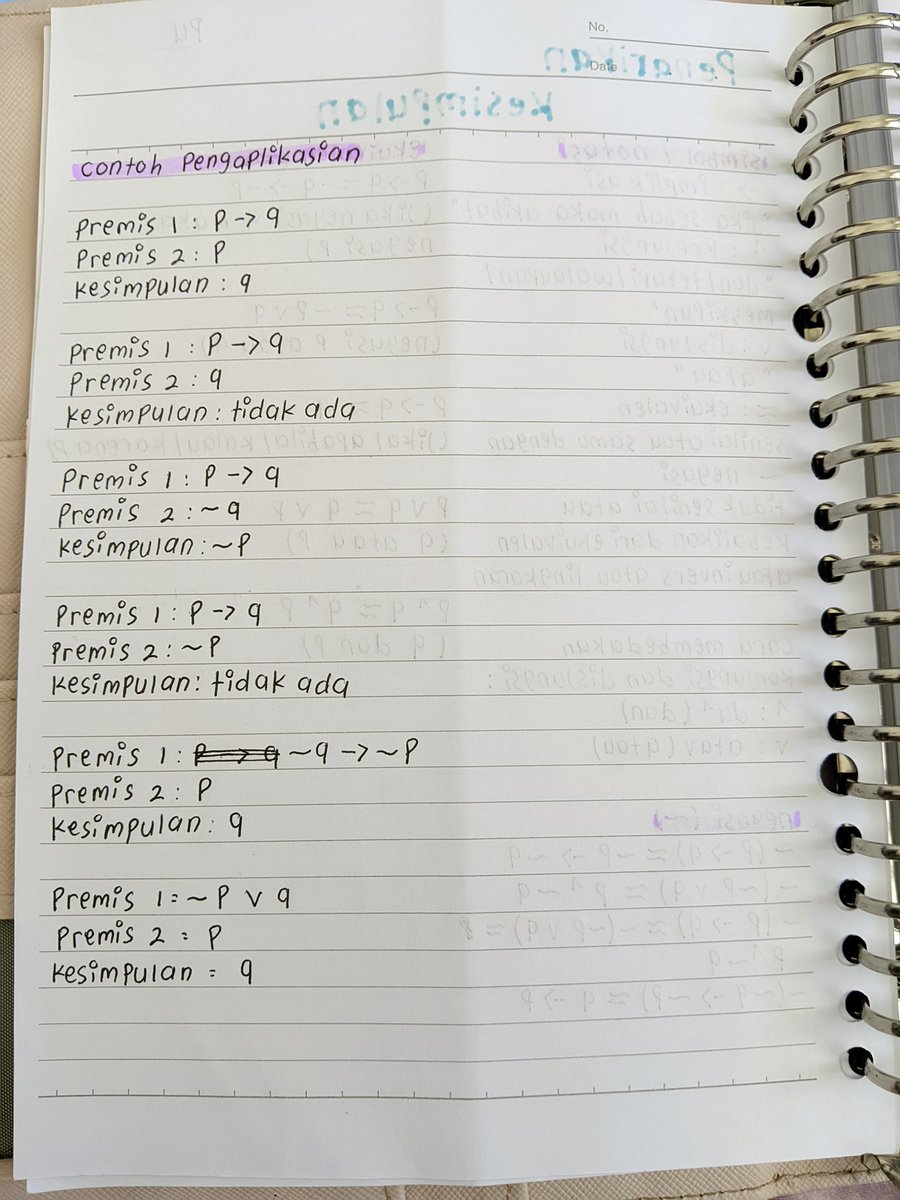 No.
Date
Contoh Pengaplikasian
Premis 1 : P -> q
Premis 2 : P
Kesimpulan : q
Premis 1 : P -> q
Premis 2 : q
Kesimpulan : tidak ada
Premis 1 : P -> q
Premis 2 : ~q
Kesimpulan : ~P
Premis 1 : P -> q
Premis 2 : ~P
Kesimpulan : tidak ada
Premis 1 : P -> q ~q -> ~P
Premis 2 : P
Kesimpulan : q
Premis 1 = ~P v q
Premis 2 = P
Kesimpulan = q